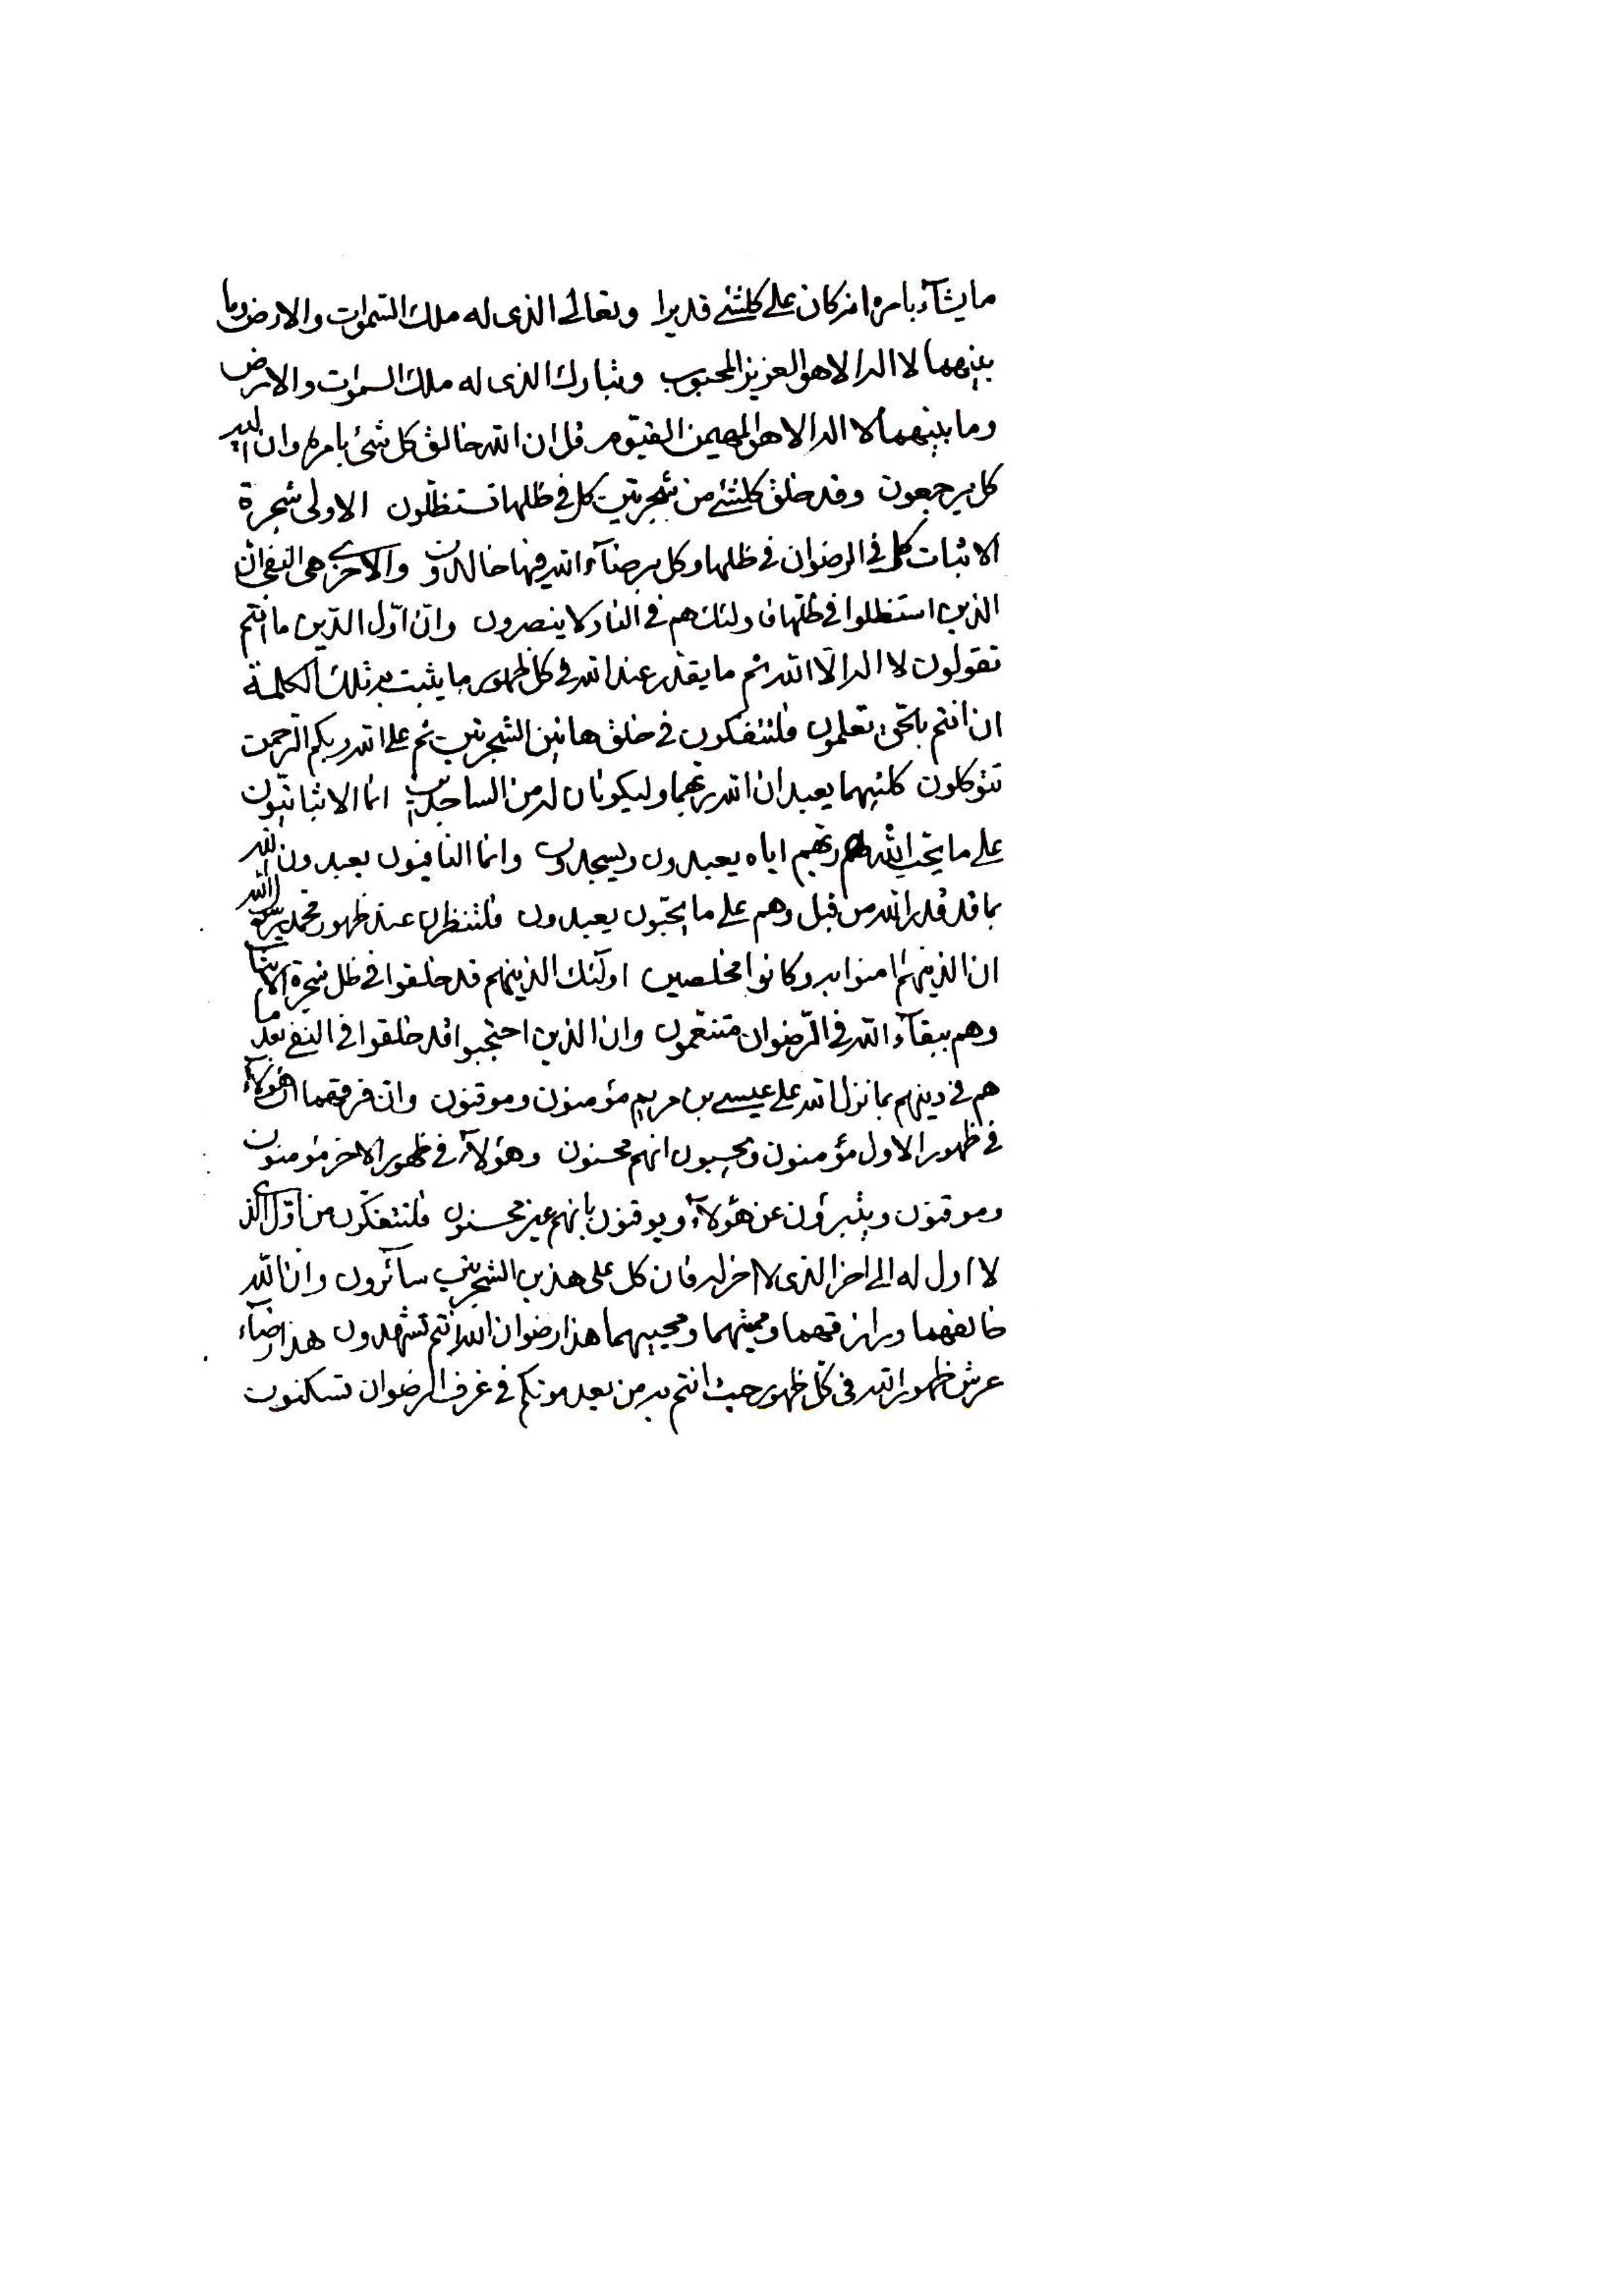 ما يشآء بامره انه كان على كلشئ قديرا وتعالى الذى له ملك السموات والارض وما
بينهما لا اله الا هو العزيز المحبوب وتبارك الذى له ملك السموات والارض
وما بينهما لا اله الا هو المهيمن القيوم قل ان الله خالق كل شئ بامره وان اليه
كل يرجعون وقد خلق كلشئ من شجرتين كل فى ظلها تستظلون الاولى شجرة
الاثبات كل فى الرضوان فى ظلها وكل برضآء الله فيها خالدون والاخرى هى النفى ان
الذين استظلوا فى ظلها فاولئك هم فى النار لا ينصرون وان اوّل الدين ما انتم
تقولون لا اله الّا الله ثم ما يقدر عند الله فى كل ظهور ما يثبت به تلك الكلمة
ان انتم بالحق تعلمون فلتتفكرون فى خلق هاتين الشجرتين ثم على الله ربكم الرحمن
تتوكلون كلتيهما يعبدان الله ربهما وليكونان له من الساجدين انما الاثباتيون
على ما يحب الله ربهم اياه يعبدون ويسجدون وانما النافيون يعبدون الله
بما قد قدر الله من قبل وهم على ما يحبّون يعبدون فلتنظرن عند ظهور محمد رسول الله
ان الذينهم امنوا به وكانوا مخلصين اولئك الذينهم قد خلقوا فى ظل شجرة الاثبات
وهم ببقآء الله فى الرّضوان متنعّمون وان الذين احتجبوا قد خلقوا فى النفى بعد ما
هم فى دينهم بما نزل الله على عيسى بن مريم مؤمنون وموقنون وان فرقهما ان هؤلآء
فى ظهور الاول مؤمنون ويحسبون انهم محسنون وهؤلآء فى ظهور الاخر مؤمنون
وموقنون ويتبرؤن عن هؤلآء ويوقنون بانهم غير محسنون فلتتفكّرون من اوّل الذى
لا اول له الى اخر الذى لا اخر له فان كل على هذين الشجرتين سائرون وان الله
خالقهما ورازقهما ومميتهما ومحييهما هذا رضوان الله انتم تشهدون هذا رضآء
عرش ظهور الله فى كلّ ظهور حيث انتم به من بعد موتكم فى غرف الرضوان تسكنون